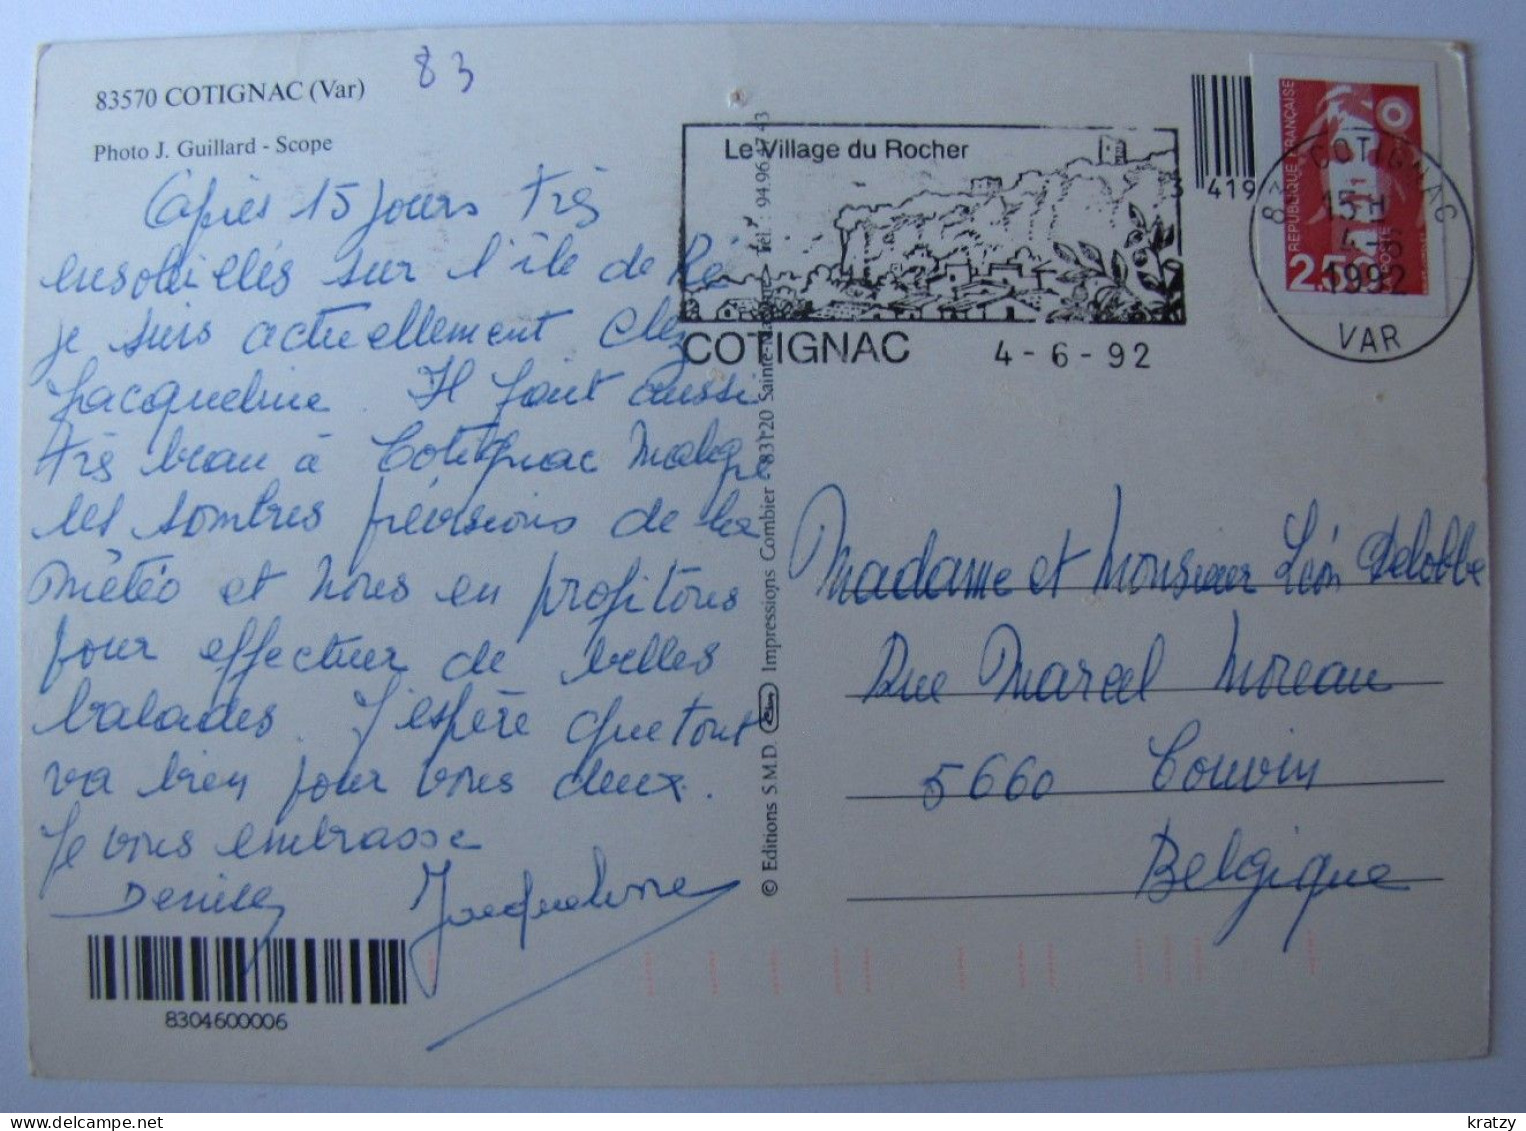 83570 COTIGNAC (Var)
83
Photo J. Guillard - Scope
Après 15 jours très
ensoleillés sur l'île de Ré
je suis actuellement chez
Jacqueline. Il fait aussi
très beau à Cotignac malgré
les sombres prévisions de la
météo et nous en profitons
pour effectuer de belles
balades. J'espère que tout
va bien pour vous deux.
Je vous embrasse
Denise
Jacqueline
8304600006
© Editions S.M.D. Impressions Combier 83120 Sainte-Maxime Tél. : 94.96.47.43
Le Village du Rocher
COTIGNAC 4-6-92
419
RÉPUBLIQUE FRANÇAISE
2,50
LA POSTE
83 COTIGNAC
15 H
4-6
1992
VAR
Madame et Monsieur Léon Delobbe
Rue Marcel Moreau
5660 Couvin
Belgique
kratzy